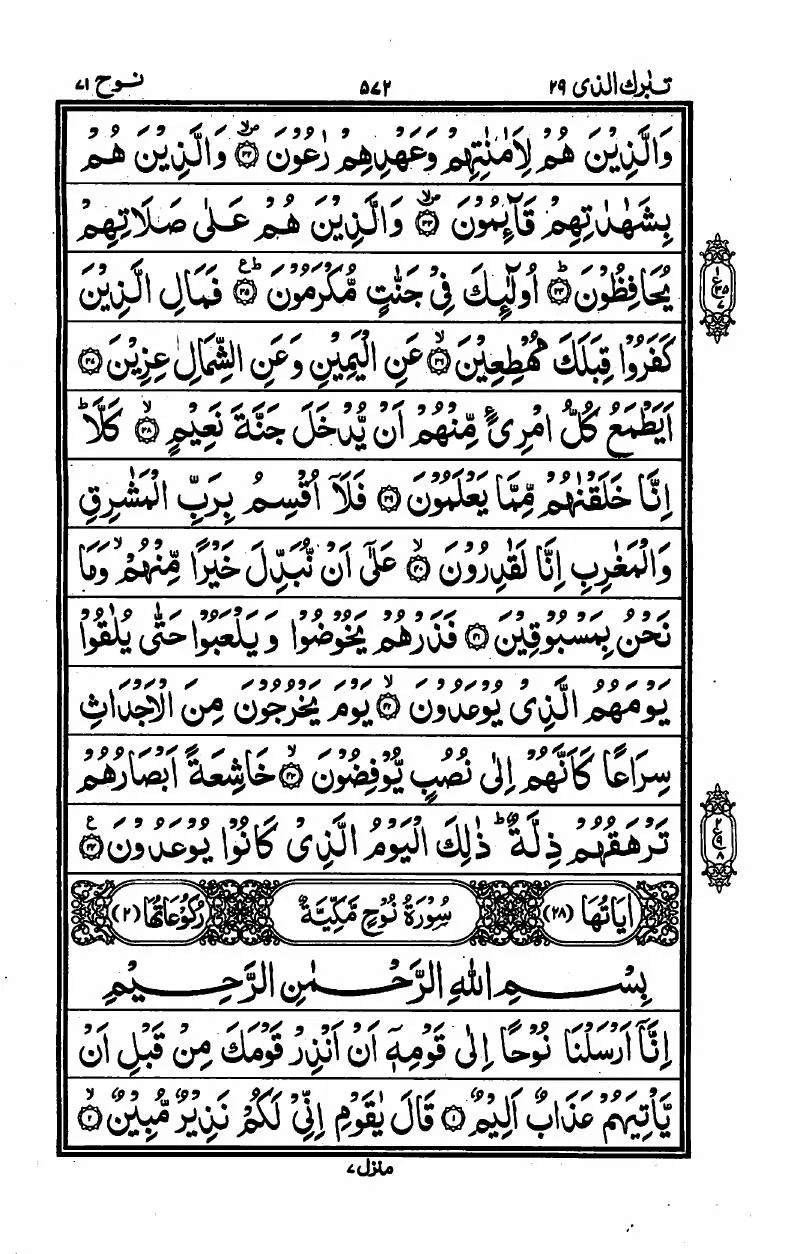 تبٰرك الذى ٢٩ ٥٧٢ نوح ٧١
وَالَّذِيْنَ هُمْ لِاَمٰنٰتِهِمْ وَعَهْدِهِمْ رٰعُوْنَ ۙ﴿٣٢﴾ وَالَّذِيْنَ هُمْ
بِشَهٰدٰتِهِمْ قَآئِمُوْنَ ۙ﴿٣٣﴾ وَالَّذِيْنَ هُمْ عَلٰى صَلَاتِهِمْ
يُحَافِظُوْنَ ؕ﴿٣٤﴾ اُولٰٓئِكَ فِىْ جَنّٰتٍ مُّكْرَمُوْنَ ؕ﴿٣٥﴾ فَمَالِ الَّذِيْنَ
كَفَرُوْا قِبَلَكَ مُهْطِعِيْنَ ۙ﴿٣٦﴾ عَنِ الْيَمِيْنِ وَعَنِ الشِّمَالِ عِزِيْنَ ﴿٣٧﴾
اَيَطْمَعُ كُلُّ امْرِئٍ مِّنْهُمْ اَنْ يُّدْخَلَ جَنَّةَ نَعِيْمٍ ۙ﴿٣٨﴾ كَلَّا ؕ
اِنَّا خَلَقْنٰهُمْ مِّمَّا يَعْلَمُوْنَ ﴿٣٩﴾ فَلَآ اُقْسِمُ بِرَبِّ الْمَشٰرِقِ
وَالْمَغٰرِبِ اِنَّا لَقٰدِرُوْنَ ۙ﴿٤٠﴾ عَلٰٓى اَنْ نُّبَدِّلَ خَيْرًا مِّنْهُمْ ۙ وَمَا
نَحْنُ بِمَسْبُوْقِيْنَ ﴿٤١﴾ فَذَرْهُمْ يَخُوْضُوْا وَيَلْعَبُوْا حَتّٰى يُلٰقُوْا
يَوْمَهُمُ الَّذِىْ يُوْعَدُوْنَ ۙ﴿٤٢﴾ يَوْمَ يَخْرُجُوْنَ مِنَ الْاَجْدَاثِ
سِرَاعًا كَاَنَّهُمْ اِلٰى نُصُبٍ يُّوْفِضُوْنَ ۙ﴿٤٣﴾ خَاشِعَةً اَبْصَارُهُمْ
تَرْهَقُهُمْ ذِلَّةٌ ؕ ذٰلِكَ الْيَوْمُ الَّذِىْ كَانُوْا يُوْعَدُوْنَ ﴿٤٤﴾ ع
اٰيَاتُهَا (٢٨) سُوْرَةُ نُوْحٍ مَّكِّيَّةٌ رُكُوْعَاتُهَا (٢)
بِسْمِ اللّٰهِ الرَّحْمٰنِ الرَّحِيْمِ
اِنَّآ اَرْسَلْنَا نُوْحًا اِلٰى قَوْمِهٖٓ اَنْ اَنْذِرْ قَوْمَكَ مِنْ قَبْلِ اَنْ
يَّاْتِيَهُمْ عَذَابٌ اَلِيْمٌ ﴿١﴾ قَالَ يٰقَوْمِ اِنِّىْ لَكُمْ نَذِيْرٌ مُّبِيْنٌ ۙ﴿٢﴾
منزل ٧